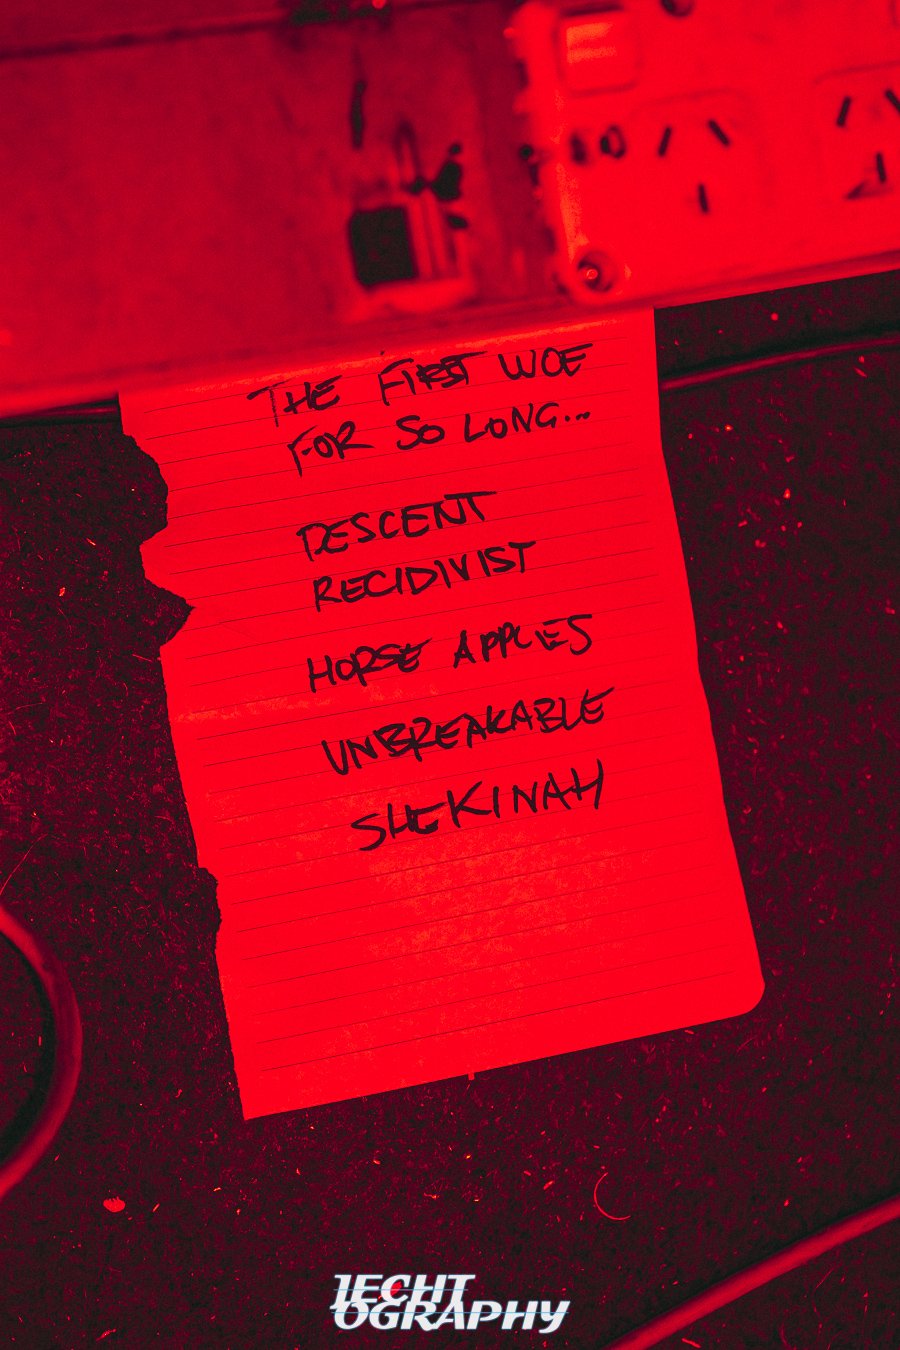 THE FIRST WOE
FOR SO LONG...
DESCENT
RECIDIVIST
HORSE APPLES
UNBREAKABLE
SHEKINAH
1ECHT
OGRAPHY